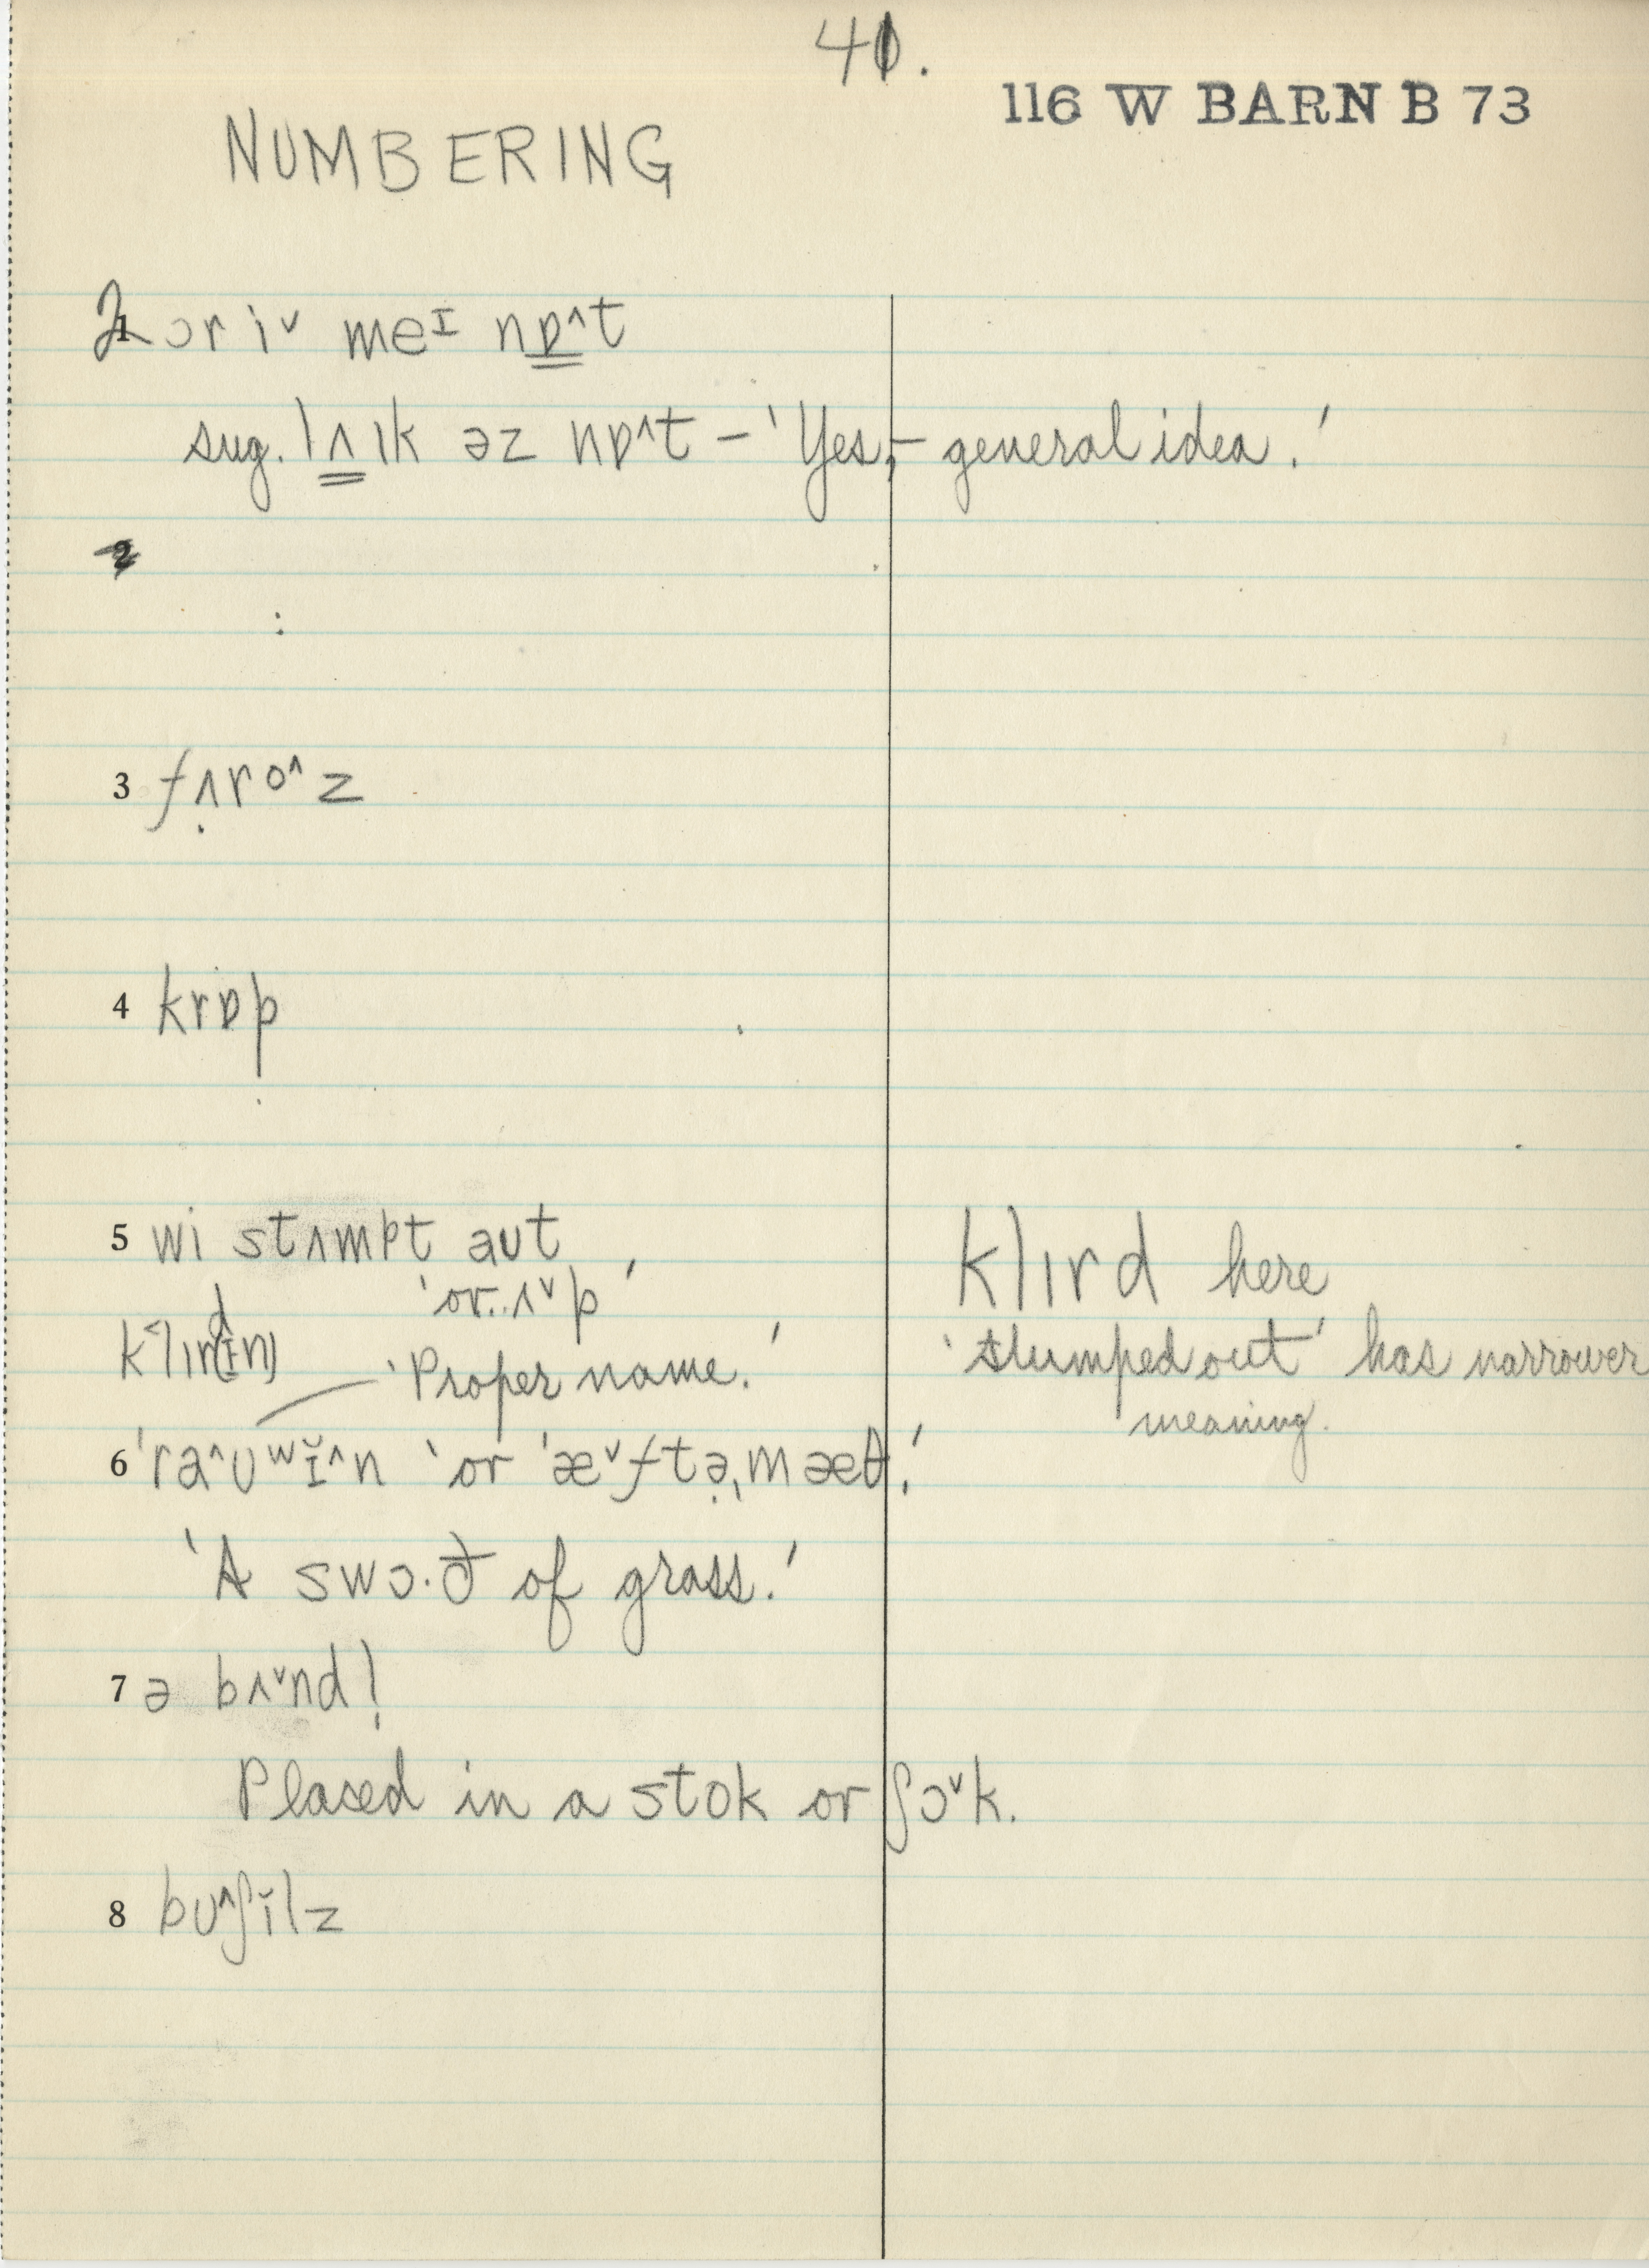 41.
116 W BARN B 73
NUMBERING
2 ɔr i˅ meɪ nɒ^t
sug. lʌɪk əz nɒ^t – 'Yes, – general idea.'
2
3 fʌ̣ro^z
4 krɒp
5 wi stʌmpt aut
'or..ʌ˅p'
klɪrd here
'stumped out' has narrower
meaning.
'Proper name.'
6 'ra^ʊʷɪ̆^n 'or 'æ˅ftə̣ˌmæθ.'
'A swɔ.ð of grass.'
7 ə bʌ˅ndl̩
Placed in a stok or ʃɔ˅k.
8 bʊ^ʃĭlz